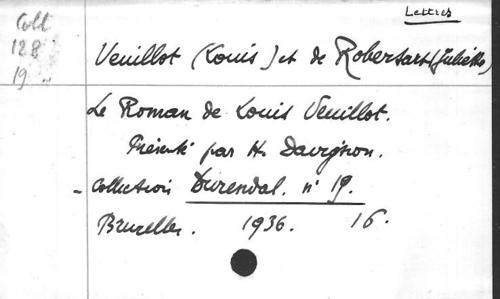 Lettres
Coll
128
19 "
Veuillot (Louis) et de Robersart (Juliette)
Le Roman de Louis Veuillot.
Présenté par H. Davignon.
- Collection Durendal. n° 19.
Bruxelles. 1936. 16.